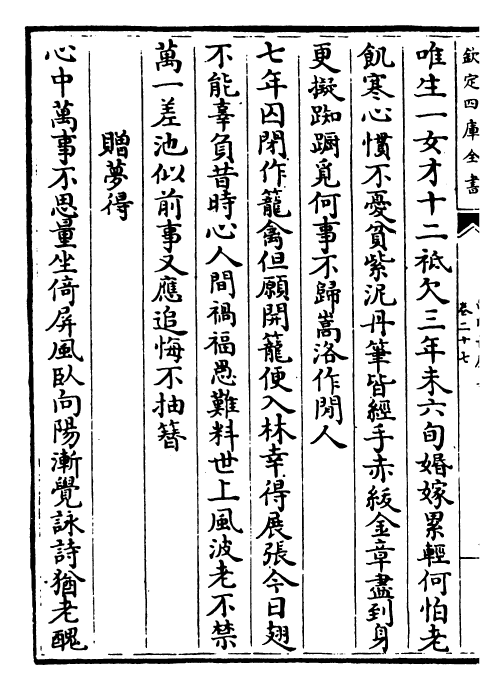 欽定四庫全書
卷二十七
唯生一女才十二祗欠三年未六旬婚嫁累輕何怕老
飢寒心慣不憂貧紫泥丹筆皆經手赤紱金章盡到身
更擬踟蹰覓何事不歸嵩洛作閒人
七年囚閉作籠禽但願開籠便入林幸得展張今日翅
不能辜負昔時心人間禍福愚難料世上風波老不禁
萬一差池似前事又應追悔不抽簮
贈夢得
心中萬事不思量坐倚屏風臥向陽漸覺詠詩猶老醜